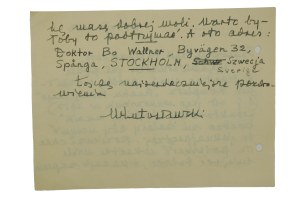 że masz dobrej woli. Warto by-
łoby to podtrzymać. A oto adres:
Doktor Bo Wallner, Byvägen 32,
Spånga, STOCKHOLM, Szwecja
Sverige
Łączę najserdeczniejsze pozdro-
wienia
WLutosławski